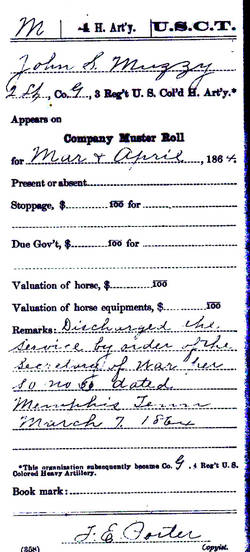 M | 4 H. Art'y. | U.S.C.T.
John S. Muzzy
2 Lt, Co. G, 3 Reg't U. S. Col'd H. Art'y.*
Appears on
Company Muster Roll
for Mar & April, 1864.
Present or absent
Stoppage, $ 100 for
Due Gov't, $ 100 for
Valuation of horse, $ 100
Valuation of horse equipments, $ 100
Remarks: Discharged the
service by order of the
Secretary of War per
SO no dated
Memphis Tenn
March 7. 1864
*This organization subsequently became Co. G, 4 Reg't U. S.
Colored Heavy Artillery.
Book mark:
J. E. Porter
(358) Copyist.